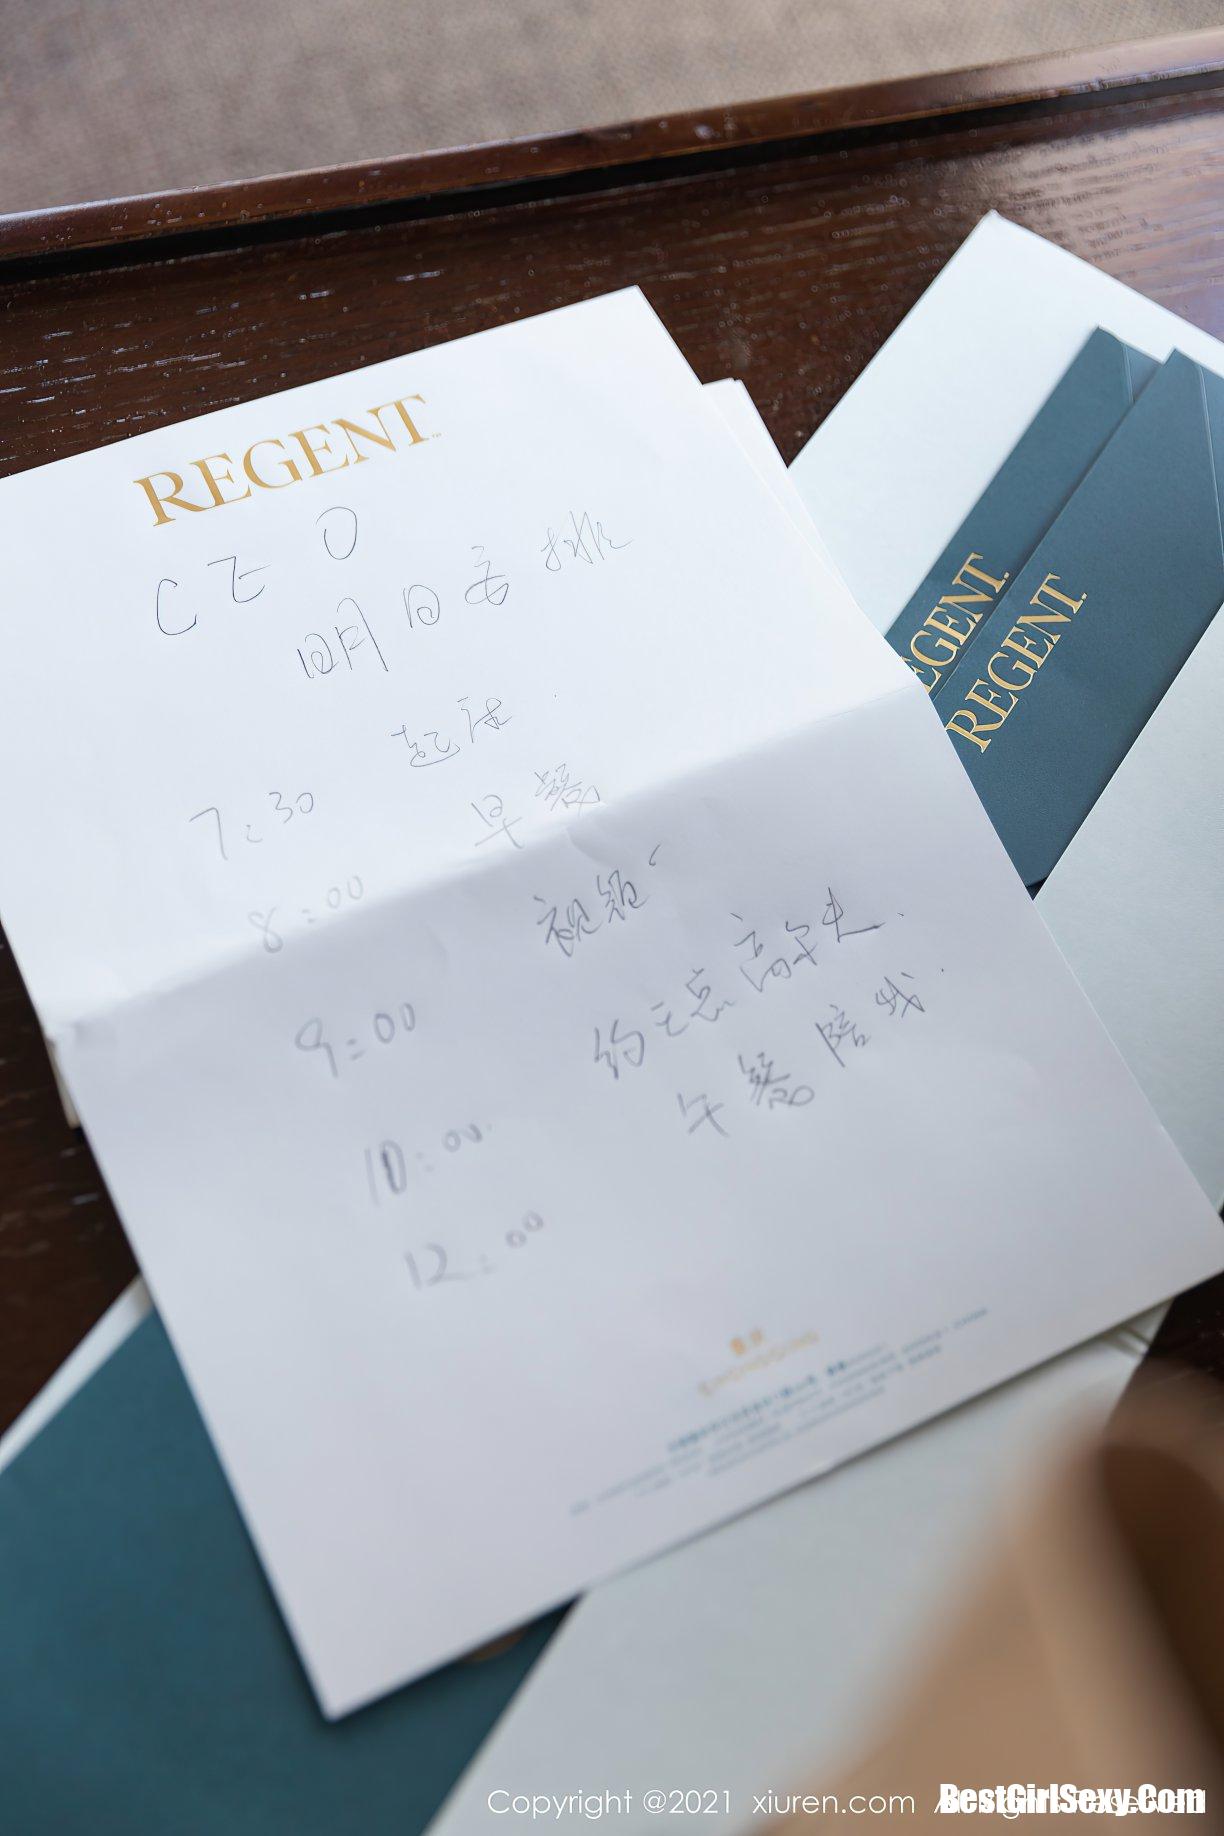 REGENT
CEO
明日安排
7:30 起床.
8:00 早餐
9:00 视频
10:00 约王总高尔夫.
12:00 午餐陪我.
重庆
CHONGQING
REGENT.
REGENT.
Copyright @2021 xiuren.com
BestGirlSexy.Com